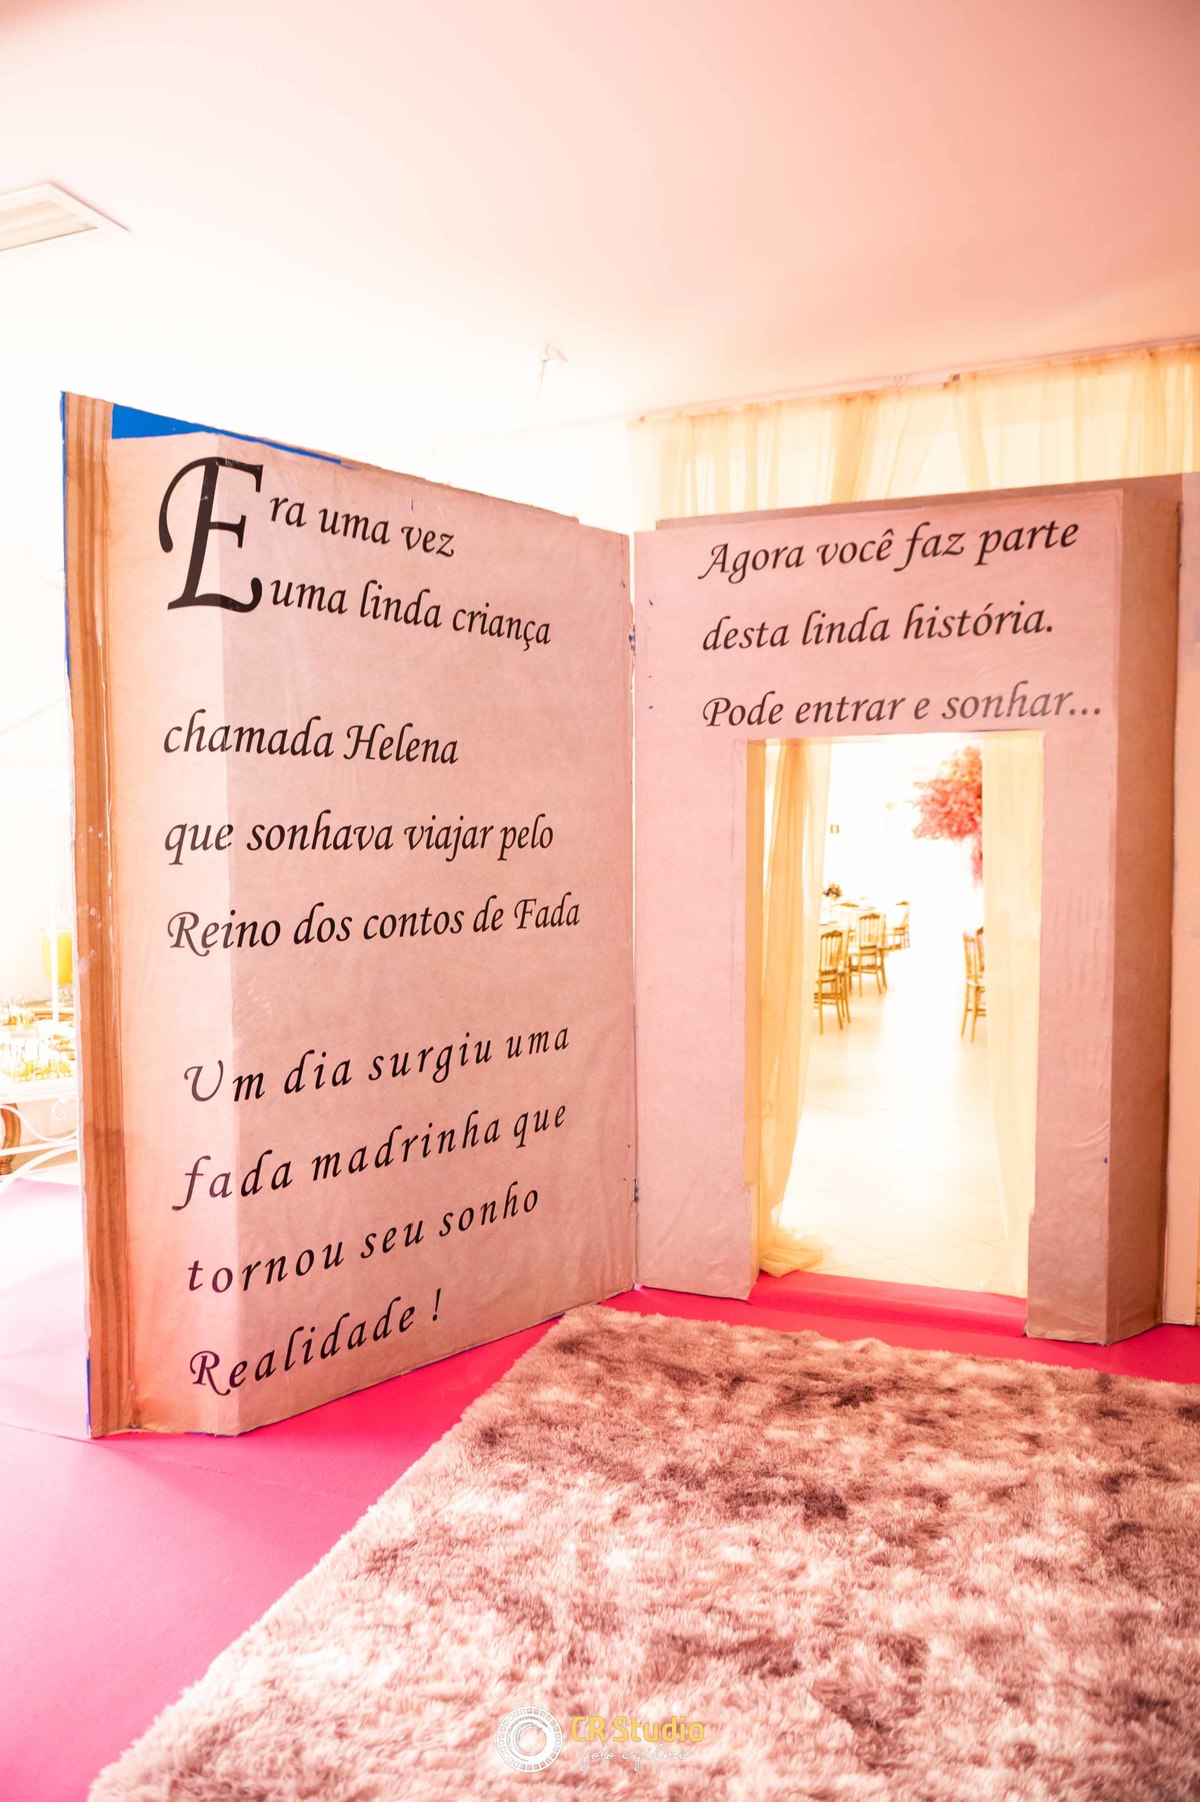 Era uma vez
uma linda criança
chamada Helena
que sonhava viajar pelo
Reino dos contos de Fada
Um dia surgiu uma
fada madrinha que
tornou seu sonho
Realidade !
Agora você faz parte
desta linda história.
Pode entrar e sonhar...
CR Studio
foto e filme